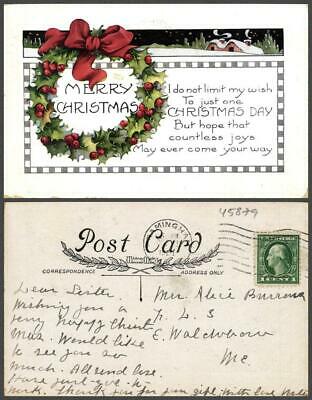 MERRY
CHRISTMAS
I do not limit my wish
To just one
CHRISTMAS DAY
But hope that
countless joys
May ever come your way
45879
MINGTON
POST CARD
CORRESPONDENCE
ADDRESS ONLY
1 CENT 1
Dear Sister
Wishing you a
very Happy Christ
mas. Would like
to see you so
much. All send love
Have just
work. Thank you for girl. With love
Mrs. Alice Burrows
E. Waldoboro
Me.